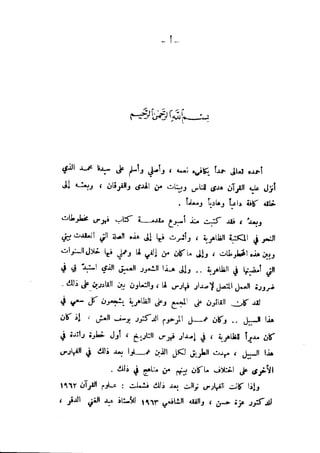 - أ -
بسم الله الرحمن الرحيم
أحمده تعالى حمداً يكافىء نعمه ، وأصلي وأسلم على سيدنا محمد الذي
أنزل عليه القرآن هدى للناس وبينات من الهدى والفرقان ، وبعثه إلى
خلقه كافة داعياً وهادياً ومعلماً .
وبعد ، فقد كتبت منذ أسبوع مقدمة كتاب فهرس مخطوطات
النحو في المكتبة الظاهرية ، وأشرت فيها إلى هذه الصلة التي انعقدت بيني
وبين هذه المخطوطات ، وإلى ما كان من إلفي لها وعملي فيها خلال السنوات
التي أمضيتها في الظاهرية .. وإلى هذا الشعور العميق الذي استبد بي في
ضرورة العمل المتصل لإصدار فهارس لها ، والتعاون بين القادرين على ذلك .
لقد كان القائمون على المجمع وعلى الظاهرية يشجعون كل سعي في
هذا السبيل .. وكان عمل المرحوم الدكتور يوسف العش ، إذ كان
كان مديراً للظاهرية ، في إصدار فهرس التاريخ ، أول خطوة رائدة في
هذا السبيل ، مهدت الطريق لكل الذين عملوا بعد ذلك في الفهارس
الأخرى على اختلاف ما كان بينهم من مناهج في ذلك .
وإذا كانت الفهارس توالت بعد ذلك فشملت : علوم القرآن ١٩٦٢
للدكتور عزة حسن ، والفقه الشافعي ١٩٦٣ للأستاذ عبد الغني الدقر ،